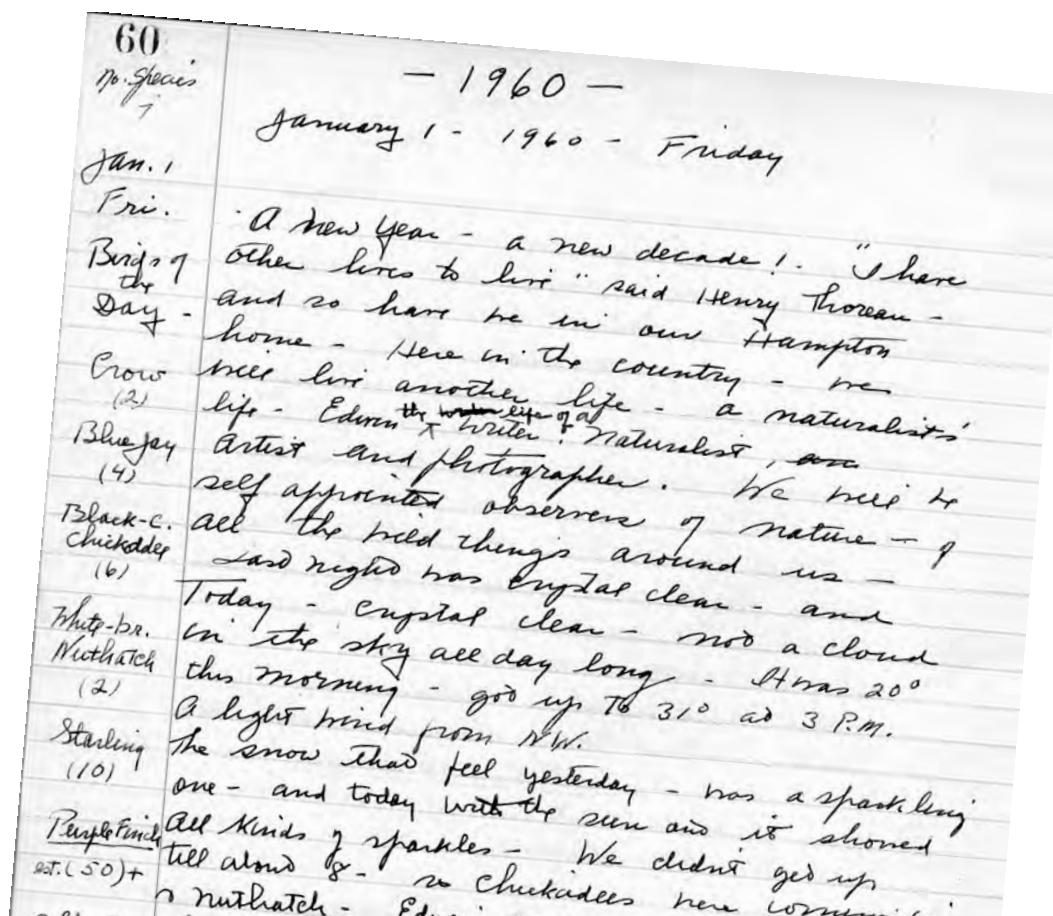 60
No. Species
7
— 1960 —
January 1 - 1960 - Friday
Jan. 1
Fri.
Birds of
the
Day -
Crow
(2)
Blue Jay
(4)
Black-c.
Chickadee
(6)
White-br.
Nuthatch
(2)
Starling
(10)
Purple Finch
est. (50)+
A New Year - a new decade! "I have
other lives to live" said Henry Thoreau -
and so have we in our Hampton
home - Here in the country - we
will live another life - a naturalists'
life - Edwin the life of a writer, Naturalist,
artist and photographer. We will be
self appointed observers of nature - of
all the wild things around us -
Last night was crystal clear - and
Today - crystal clear - not a cloud
in the sky all day long - It was 20°
this morning - got up to 31° at 3 P.M.
A light wind from NW.
The snow that feel yesterday - was a sparkling
one - and today with the sun and it showed
all kinds of sparkles - We didn't get up
till about 8 - so Chickadees were
Nuthatch -